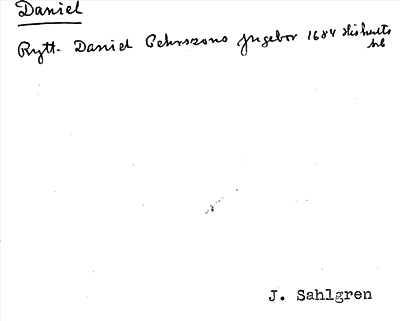 Daniel
Rytt. Daniel Pehrszons Jngebor 1684 Hishults
kb
J. Sahlgren